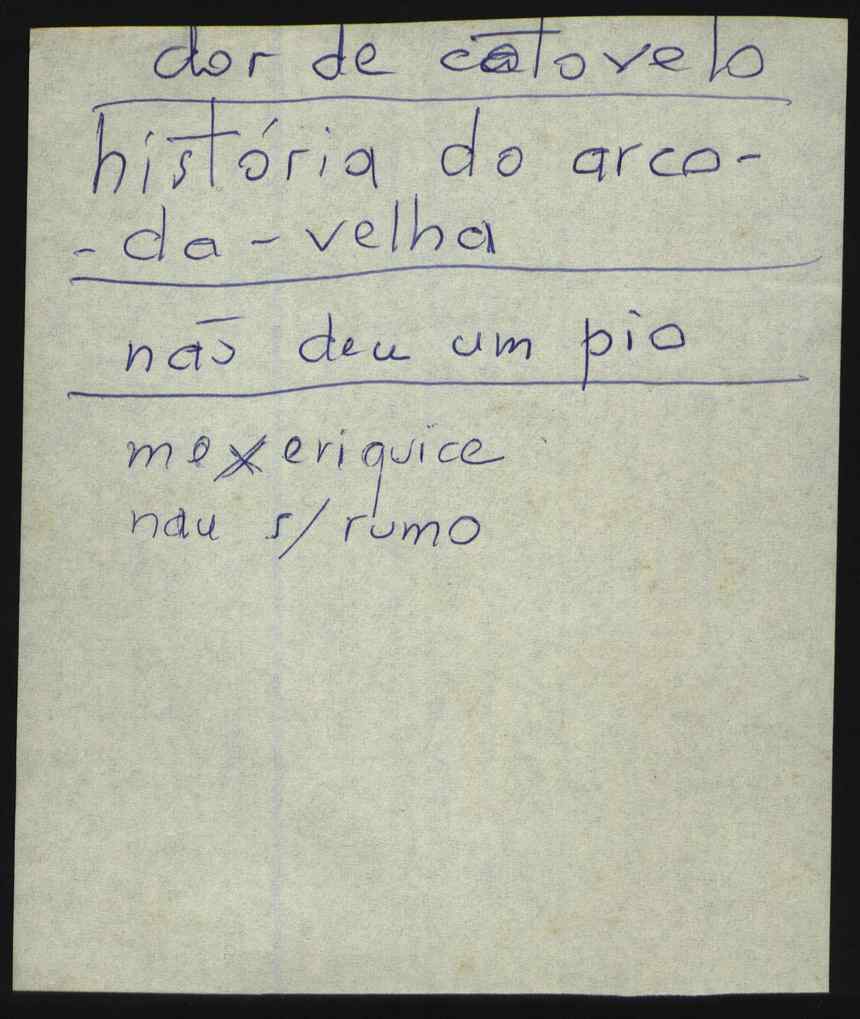 dor de cotovelo
história do arco-
-da-velha
não deu um pio
mexeriquice
nau s/ rumo